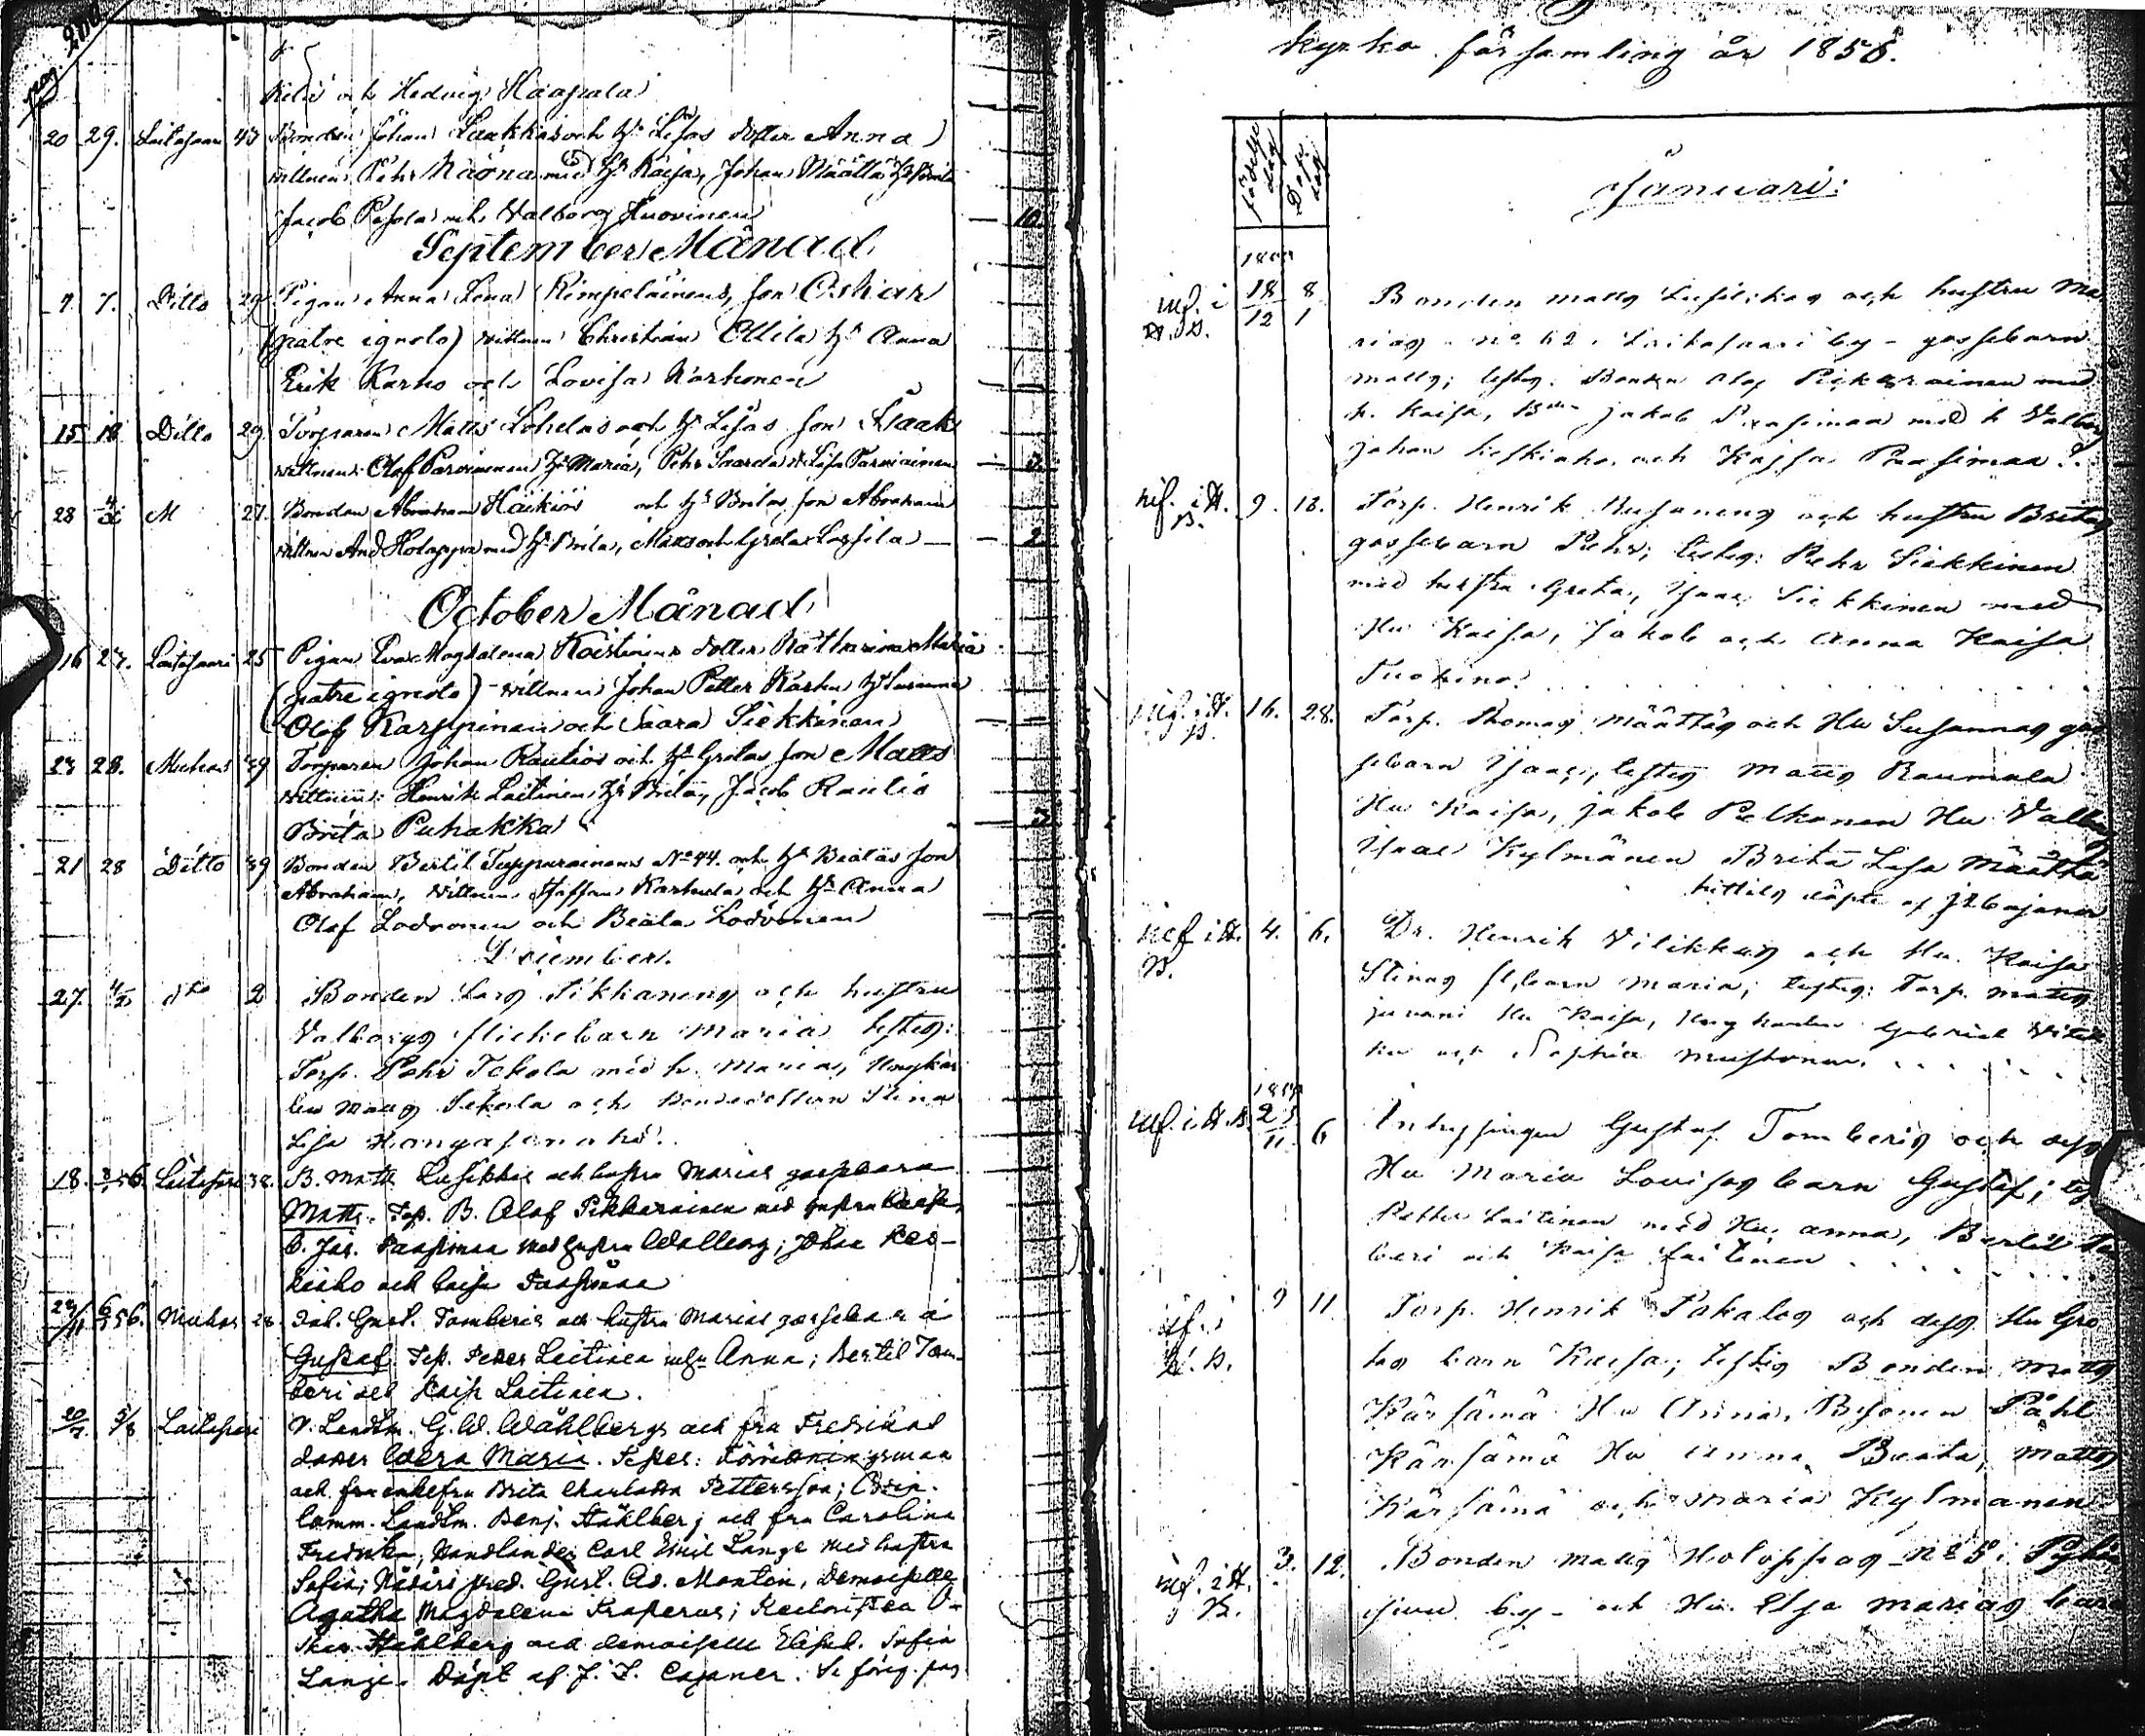 pag. 2nd
och Hedvig Haapala
20 29. Laitasaari 43 Bonden Johan Laakkos och H. Lisas dotter Anna
vittnen Pehr Naona med H. Kaisa, Johan Määttä H. Brita
Jacob Pesola och Valborg Huovinen — 10.
September Månad
7. 7. Ditto 29 Pigan Anna Lena Kimpeläinens, son Oskar
(patre ignoto) vittnen Christian Ollila H. Anna
Erik Karho och Lovisa Karhonen
15 18 Ditto 29 Torparen Matts Lohelas och H. Lisas son Isaak
vittnen: Olof Parviainen H. Maria, Pehr Saarela & Lisa Parviainen — 3.
28 M 27. Bonden Abraham Häikiös och H. Britas son Abraham
vittnen And Holappa med H. Brita, Matts och Greta Lassila — 2
October Månad
16 27. Laitasaari 25 Pigan Eva Magdalena Koistinens dotter Katharina Maria
(patre ignoto) – vittnen Johan Petter Karhu H. Susanna
Olof Karppinen och Saara Siekkinen
23 28. Muhos 39 Torparen Johan Rautios och H. Gretas son Matts
vittnen: Henrik Laitinen H. Brita, Jacob Rautio
Brita Puhakka — 3
21 28 Ditto 39 Bonden Bertil Tuppurainens No 44. och H. Beatas son
Abraham, vittnen Staffan Karhula och H. Anna
Olof Lodvonen och Beata Lodvonen
December.
27. dto 2 Bonden Lars Sikkanens och hustru
Valborgs flickebarn Maria testes:
Torp. Pehr Tokola med h. Maria, Ungkar
len Matts Tokola och Bondedottern Stina
Lisa Kangasenaho.
18. 56. Laitasaari 38. B. Matts Lusikkas och hustru Marias gossebarn
Matts. Tes. B. Olof Pikkarainen med hustru Kaisa,
B. Jac. Paasimaa med hustru Wallborg; Johan Kes-
kiaho och Caisa Paasimaa
23/11 6/1 56. Muhos 28. Inh. Gust. Tomberis och hustru Marias gossebarn
Gustaf. Tes. Petter Laitinen m. h. Anna; Bertil Tom-
beri och Kaisa Laitinen.
20/7 5/8 Laitasaari V. Landtm. G. W. Wåhlbergs och fru Fredrikas
dotter Wera Maria. Testes: Förvaltningsman
och fru enkefru Brita Charlotta Pettersson;
Comm. Landtm. Benj. Ståhlberg och fru Carolina
Fredrika; Handlanden Carl Emil Lange med hustru
Sofia; Nådårs pred. Gust. Ad. Montin, Demoiselle
Agatha Magdalena Fraserus; O-
skar Ståhlberg och demoiselle Elisab. Sofia
Lange. Döpt af J. F. Cajaner. Se förig. pag
kyrko församling år 1856.
födelse dag Döpelse dag
Januari:
18/12 8/1 Bonden Matts Lusikkas och hustru Ma
rias – No 62. Laitasaari by – gossebarn
Matts; testes: Bonden Olof Pikkarainen med
h. Kaisa, Bden Jakob Paasimaa med h Valborg
Johan Keskiaho och Kajsa Paasimaa.
9. 13. Torp. Henrik Kusanens och hustru Britas
gossebarn Pehr; testes: Pehr Siekkinen
med hustru Greta, Isaac Siekkinen med
Hu Kaisa, Jakob och Anna Kaisa
Tuokino.
16. 28. Torp. Thomas Määttäs och Hu Susannas gos
sebarn Isaac; testes Matts Raumala
Hu Kaisa, Jakob Pelkonen Hu Valborg
Isaac Kylmänen Brita Lisa Määttä
hittils döpte af J F Cajaner
4. 6. Dr. Henrik Vilikkas och Hu. Kaisa
Stinas fl.barn Maria; testes: Torp. Matts
Juvani Hu Kaisa, Ungkarlen Gabriel Vilik
ka och Sophia Mustonen.
23/11. 6 Inhysingen Gustaf Tomberis och dess
Hu Maria Lovisas barn Gustaf; tes
Petter Laitinen med Hu; Anna, Bertil To
beri och Kaisa Laitinen
9 11 Torp. Henrik Pakalas och dess Hu Gre
tas barn Kaisa; testes Bonden Matts
Kärsämä Hu Anna, Bsonen Påhl
Kärsämä Hu Anna Beata, Matts
Kärsämä och Maria Kylmänen
3. 12. Bonden Matts Holappas – No 5 i
by – och Hu. Elsa Marias barn